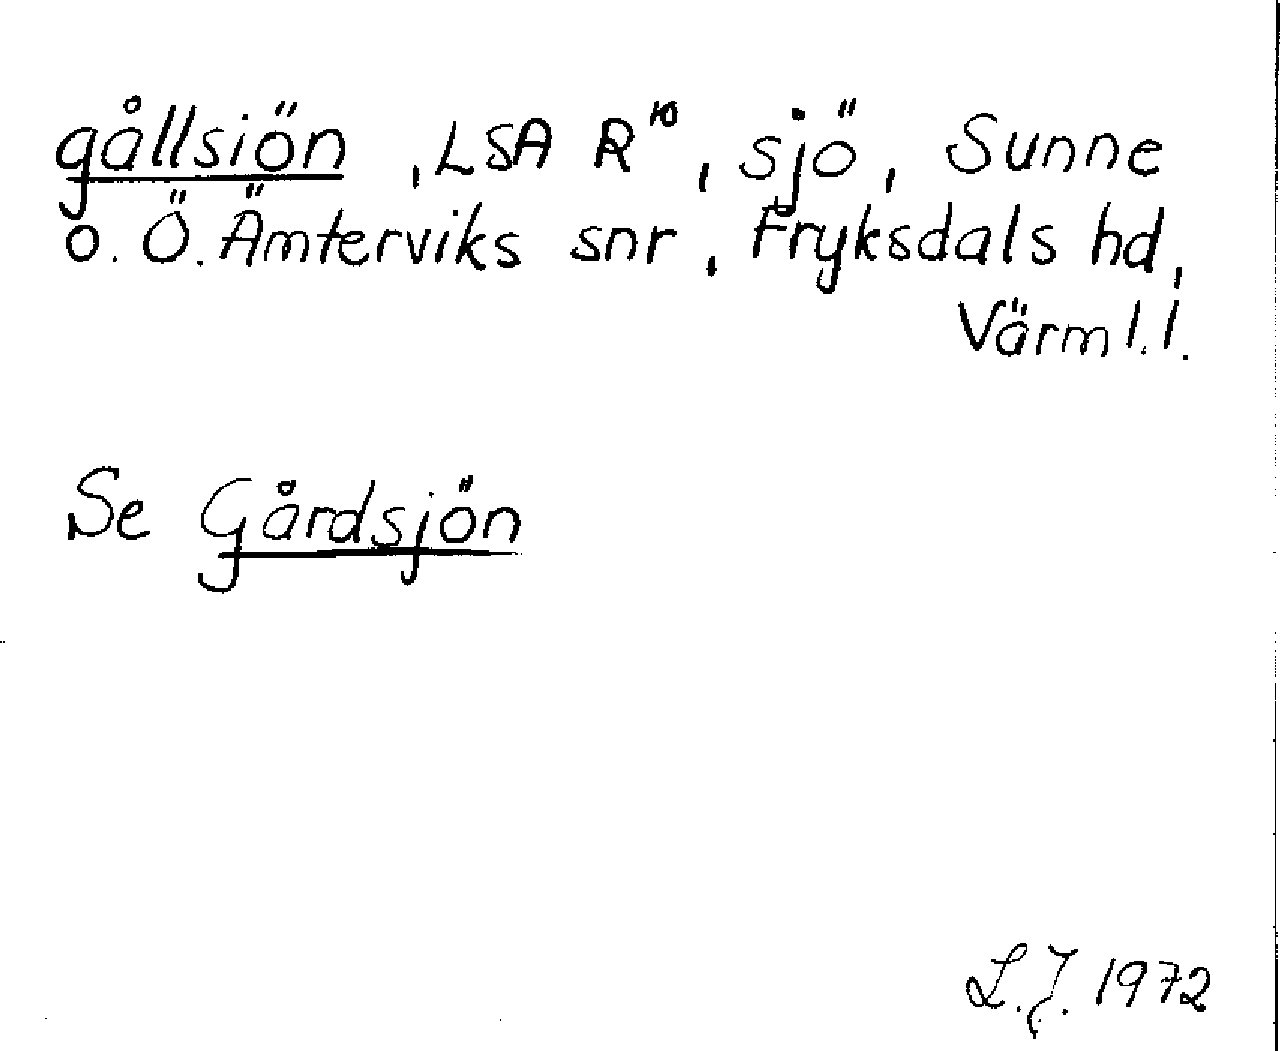 gållsiön, LSA R¹⁰, sjö, Sunne
o. Ö. Ämterviks snr, Fryksdals hd,
Värml. l.
Se Gårdsjön
L.J. 1972